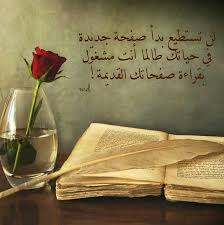 لن تستطيع بدأ صفحة جديدة
في حياتك طالما أنت مشغول
بقراءة صفحاتك القديمة !